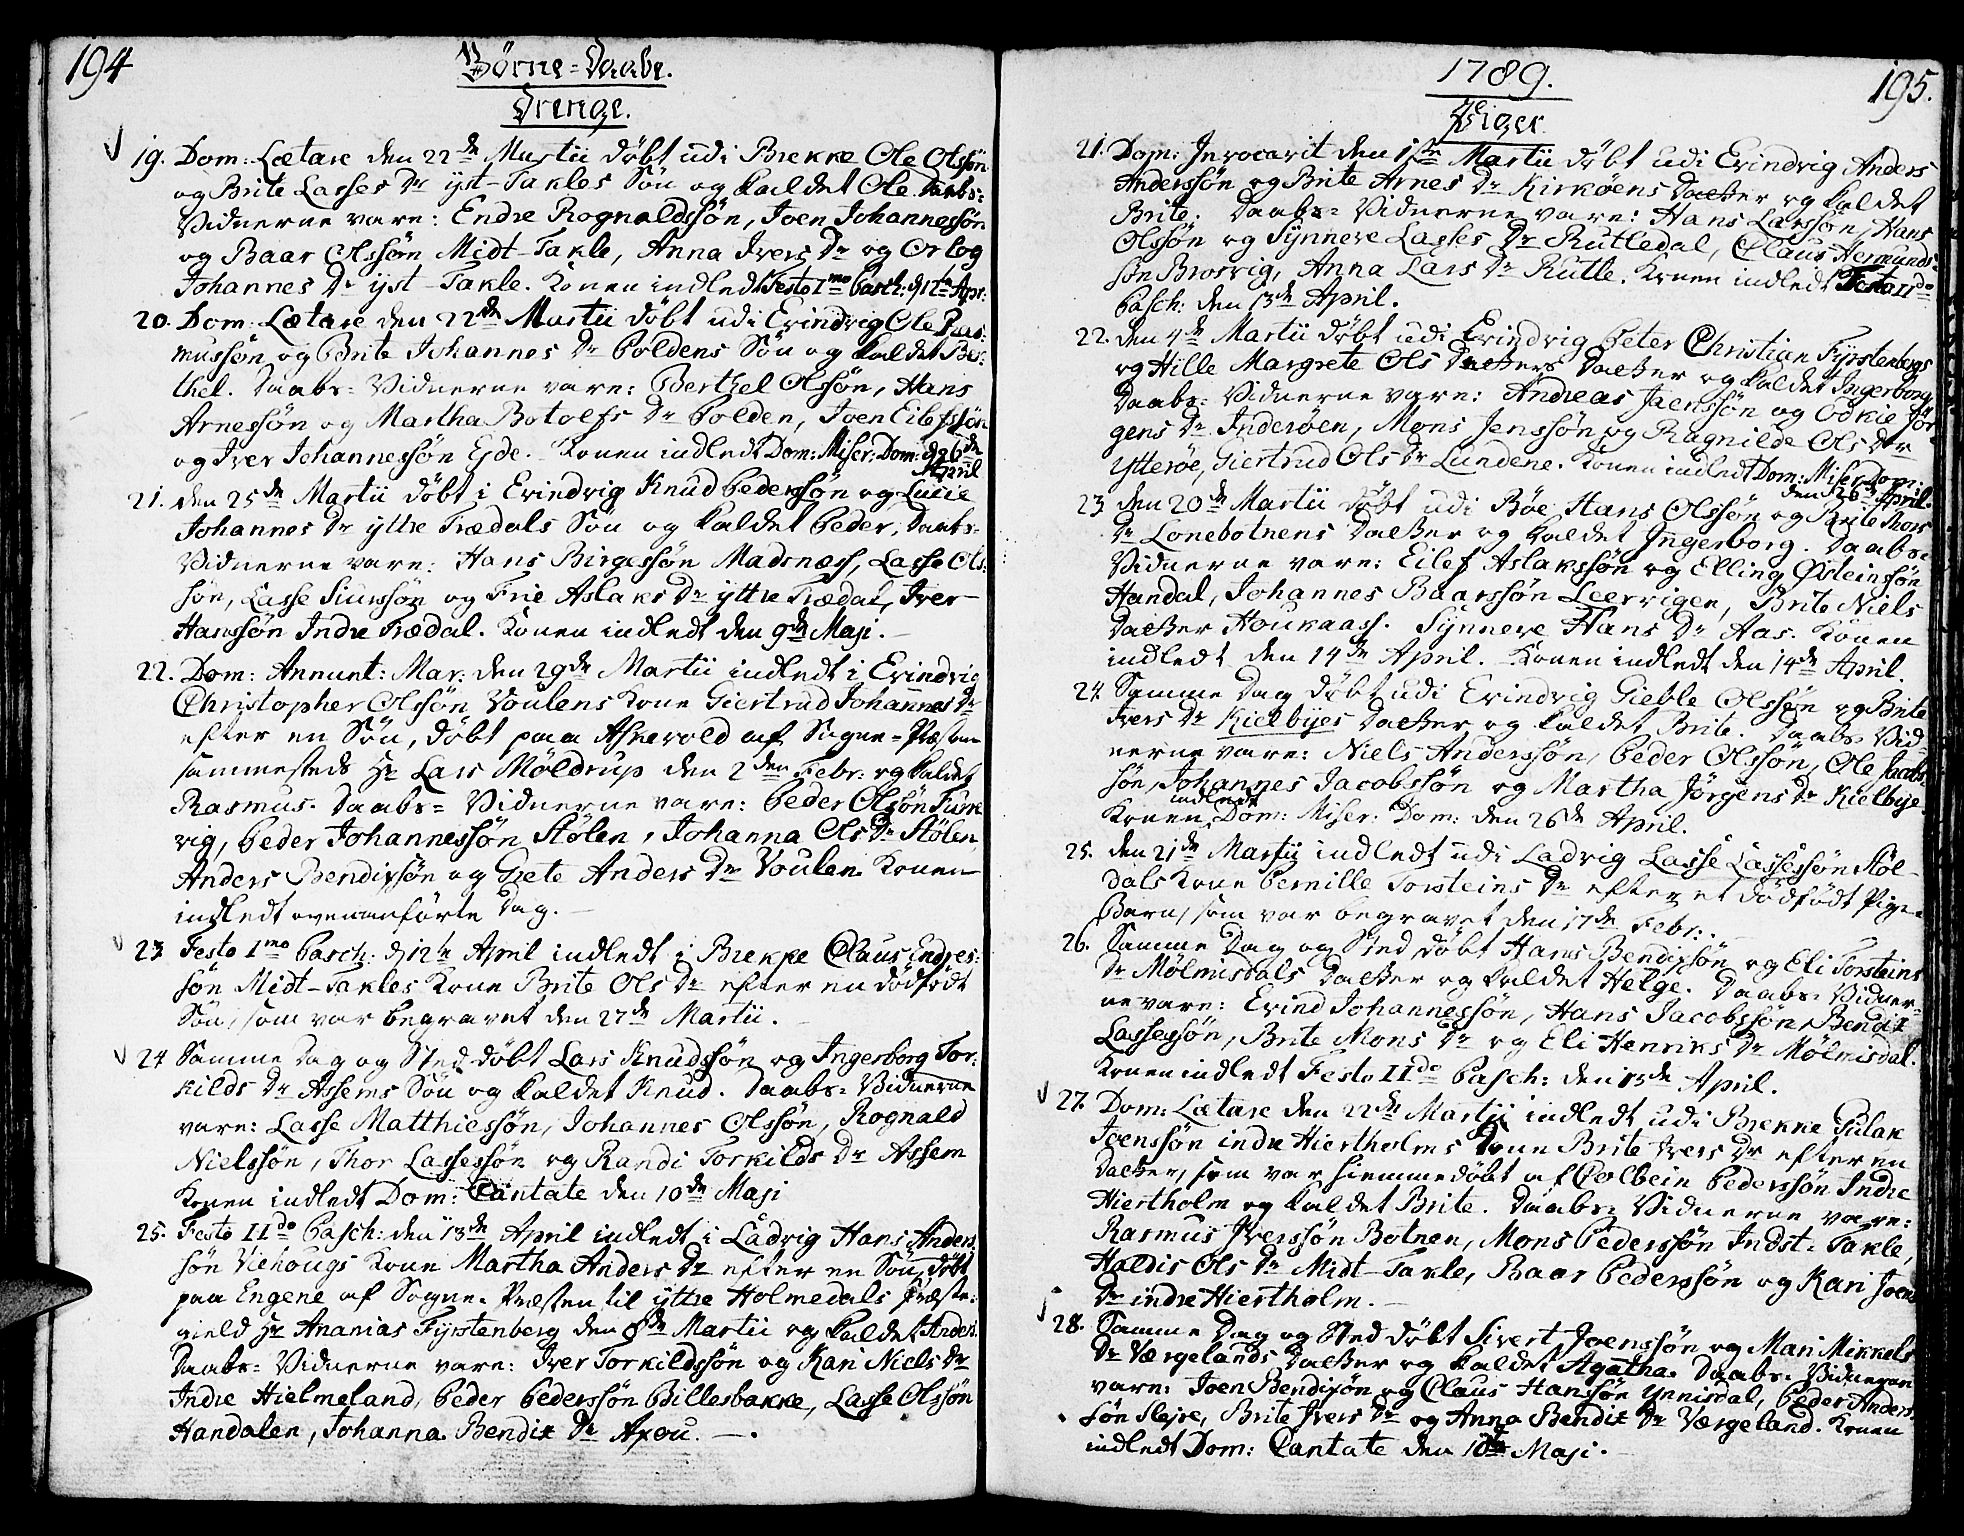 194
Börne-Daabe.
Drenge.
19. Dom: Lætare den 22de Martii döbt udi Brekke Ole Olssøn
og Brite Lasses Dr yst-Takles Søn og kaldet Ole. Daabs-
Vidnerne vare: Endre Rognaldssøn, Joen Johannessøn
og Baar Olssøn Midt-Takle, Anna Ivers Dr og Orlog
Johannes Dr yst-Takle. Konen indledt Festo 1mo Pasch: d 12te Apr:
20. Dom: Lætare den 22de Martii döbt udi Evindvig Ole Ras-
mussøn og Brite Johannes Dr Poldens Søn og kaldet Ber-
thel. Daabs-Vidnerne vare: Berthel Olssøn, Hans
Arnessøn og Martha Botolfs Dr Polden, Joen Eilefssøn
og Iver Johannessøn Eide. Konen indledt Dom: Miser: Dom: d 26de
April
21. den 25de Martii döbt i Evindvig Knud Pederssøn og Lucie
Johannes Dr yttre Trædals Søn og kaldet Peder. Daabs-
Vidnerne vare: Hans Birgessøn Madsnæss, Lasse Ols-
søn, Lasse Siurssøn og Frie Aslaks Dr yttre Trædal, Iver
Hanssøn Indre Trædal. Konen indledt den 9de Maji.
22. Dom: Annunt: Mar: den 29de Martii indledt i Evindvig
Christopher Olssøn Voulens Kone Giertrud Johannes Dr
efter en Søn, döbt paa Askevold af Sogne-Præsten
sammesteds Hr Lars Möldrup den 2den Febr: og kaldet
Rasmus. Daabs-Vidnerne vare: Peder Olssøn Turre
vig, Peder Johannessøn Stølen, Johanna Ols Dr Stølen,
Anders Bendixsøn og Grete Anders Dr Voulen. Konen
indledt ovenanförte Dag.
23. Festo 1mo Pasch: d 12te April indledt i Brekke Claus Endres-
søn Midt-Takles Kone Brite Ols Dr efter en dödfödt
Søn, som var begravet den 27de Martii.
24. Samme Dag og Sted döbt Lars Knudssøn og Ingerborg Tor-
kilds Dr Assems Søn og kaldet Knud. Daabs-Vidnerne
vare: Lasse Matthiessøn, Johannes Olssøn, Rognald
Nielssøn, Thor Lassessøn og Randi Torkilds Dr Assem
Konen indledt Dom: Cantate den 10de Maji
25. Festo IIdo Pasch: den 13de April indledt i Ladvig Hans Anders
søn Viehougs Kone Martha Anders Dr efter en Søn, döbt
paa Engene af Sogne-Præsten til yttre Holmedals Præste-
gield Hr Ananias Fyrstenberg den 8de Martii og kaldet Anders.
Daabs-Vidnerne vare: Iver Torkildssøn og Kari Niels Dr
Indre Hielmeland, Peder Pederssøn Billesbakke, Lasse Olssøn
Handalen, Johanna Bendix Dr
1789.
195.
Piger.
21. Dom: Invocavit den 1ste Martii döbt udi Evindvig Anders
Anderssøn og Brite Arnes Dr Kirkøens Datter og kaldet
Brite. Daabs-Vidnerne vare: Hans Larssøn, Hans
Olssøn og Synneve Lasses Dr Rutledal, Claus Hermunds-
søn Brosvig, Anna Lars Dr Rutle. Konen indledt Festo IIdo
Pasch: den 13de April.
22. den 4de Martii döbt udi Evindvig Peter Christian Fyrstenbergs
og Hille Margrete Ols Datters Datter og kaldet Ingerborg
Daabs-Vidnerne vare: Andreas Jaenssøn og Odkie Jör-
gens Dr Inderøen, Mons Jenssøn og Ragnilde Ols Dr
Ytterøe, Giertrud Ols Dr Lundene. Konen indledt Dom: Miser: Dom:
den 26de April.
23. den 20de Martii döbt udi Bøe Hans Olssøn og Brite Thors
Dr Lonebotnens Datter og kaldet Ingerborg. Daabs-
Vidnerne vare: Eilef Aslakssøn og Elling Østeinssøn
Handal, Johannes Baarssøn Leervigen, Brite Niels
Datter Houkaass. Synneve Hans Dr Aas. Konen
indledt den 14de April. Konen indledt den 14de April.
24. Samme Dag döbt udi Evindvig Gieble Olssøn og Brite
Ivers Dr Kielbyes Datter og kaldet Brite. Daabs-Vid-
nerne vare: Niels Anderssøn, Peder Olssøn, Ole Jacobs
søn, Johannes Jacobssøn og Martha Jörgens Dr Kielbye.
Konen indledt Dom: Miser: Dom: den 26de April.
25. den 21de Martii indledt udi Ladvig Lasse Lassessøn Støl-
dals Kone Pernille Torsteins Dr efter et dödfödt Pige-
Barn, som var begravet den 17de Febr:.
26. Samme Dag og Sted döbt Hans Bendixsøn og Eli Torsteins
Dr Mølmisdals Datter og kaldet Helge. Daabs-Vidner-
ne vare: Evind Johannessøn, Hans Jacobssøn, Bendix
Lassessøn, Brite Mons Dr og Eli Henriks Dr Mølmisdal.
Konen indledt Festo IIdo Pasch: den 13de April.
27. Dom: Lætare den 22de Martii indledt udi Brekke Gulak
Joenssøn indre Hiertholms Kone Brite Ivers Dr efter en
Datter, som var hiemmedöbt af Colbein Pederssøn Indre
Hiertholm og kaldet Brite. Daabs-Vidnerne vare:
Rasmus Iverssøn Botnen, Mons Pederssøn Indst-Takle,
Haldis Ols Dr Midt-Takle, Baar Pederssøn og Kari Joens
Dr indre Hiertholm.
28. Samme Dag og Sted döbt Sivert Joenssøn og Mari Mikkels
Dr Værgelands Datter og kaldet Agatha. Daabs-Vidnerne
vare: Joen Bendixsøn og Claus Hanssøn Ynnisdal, Peder Anders-
søn Slejre, Brite Ivers Dr og Anna Bendix Dr Værgeland. Konen
indledt Dom: Cantate den 10de Maji.